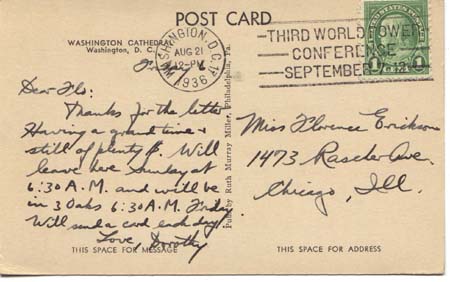 POST CARD
WASHINGTON CATHEDRAL
Washington, D. C.
WASHINGTON, D.C. 17
AUG 21
12-PM
1936
THIRD WORLD POWER
CONFERENCE
SEPTEMBER 7-12
UNITED STATES POSTAGE
1 1
Friday
Dear Flo:
Thanks for the letter
Having a grand time &
still of plenty $. Will
leave here Sunday at
6:30 A.M. and will be
in 3 Oaks 6:30 A.M. Friday
Will send a card each day
Love, Dorothy
THIS SPACE FOR MESSAGE
Pub. by Ruth Murray Miller, Philadelphia, Pa.
Miss Florence Erickson
1473 Rascher Ave.
Chicago, Ill.
THIS SPACE FOR ADDRESS